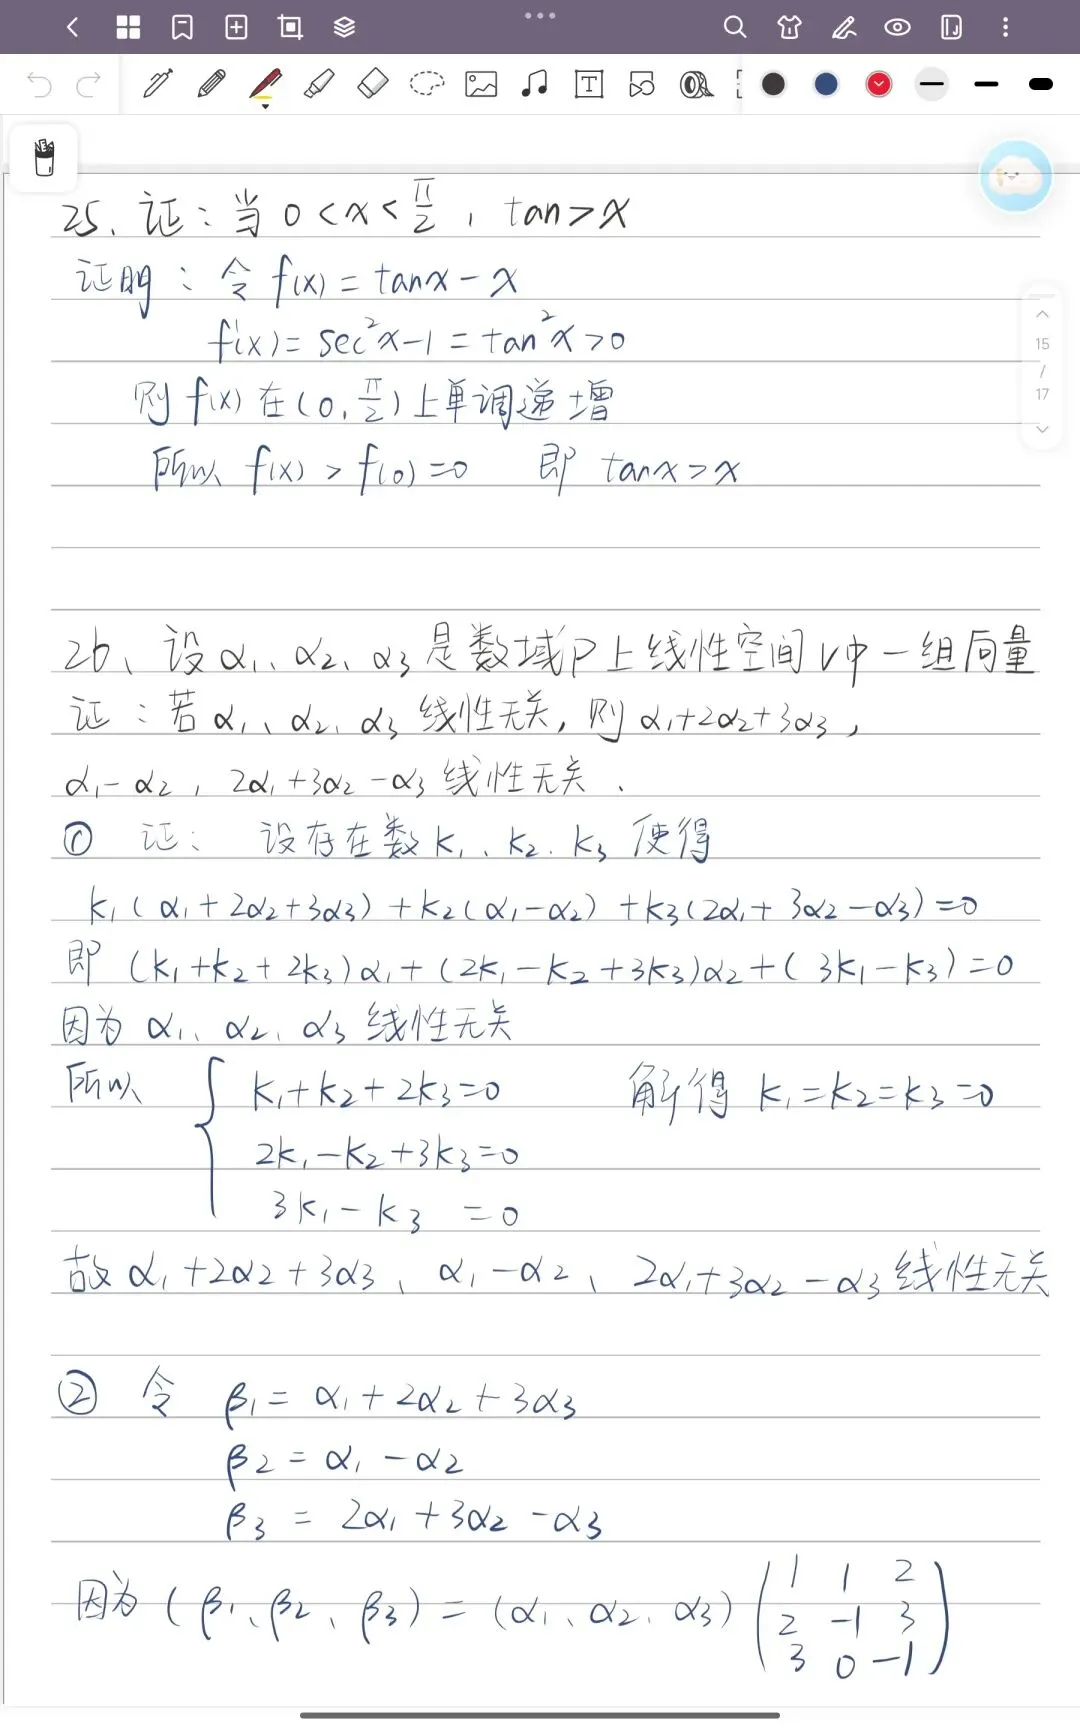 25、证：当 0 < x < π/2 , tan > x
证明：令 f(x) = tanx - x
f'(x) = sec²x - 1 = tan²x > 0
则 f(x) 在 (0, π/2) 上单调递增
所以 f(x) > f(0) = 0 即 tanx > x
15
/
17
26、设 α₁、α₂、α₃ 是数域P上线性空间V中一组向量
证：若 α₁、α₂、α₃ 线性无关, 则 α₁+2α₂+3α₃ ,
α₁-α₂ , 2α₁+3α₂-α₃ 线性无关.
① 证： 设存在数 k₁、k₂、k₃ 使得
k₁(α₁+2α₂+3α₃) + k₂(α₁-α₂) + k₃(2α₁+3α₂-α₃) = 0
即 (k₁+k₂+2k₃)α₁ + (2k₁-k₂+3k₃)α₂ + (3k₁-k₃) = 0
因为 α₁、α₂、α₃ 线性无关
所以 { k₁+k₂+2k₃=0 解得 k₁=k₂=k₃=0
2k₁-k₂+3k₃=0
3k₁-k₃ =0
故 α₁+2α₂+3α₃、α₁-α₂、2α₁+3α₂-α₃ 线性无关
② 令 β₁ = α₁+2α₂+3α₃
β₂ = α₁-α₂
β₃ = 2α₁+3α₂-α₃
因为 (β₁、β₂、β₃) = (α₁、α₂、α₃) ( 1 1 2
2 -1 3
3 0 -1 )